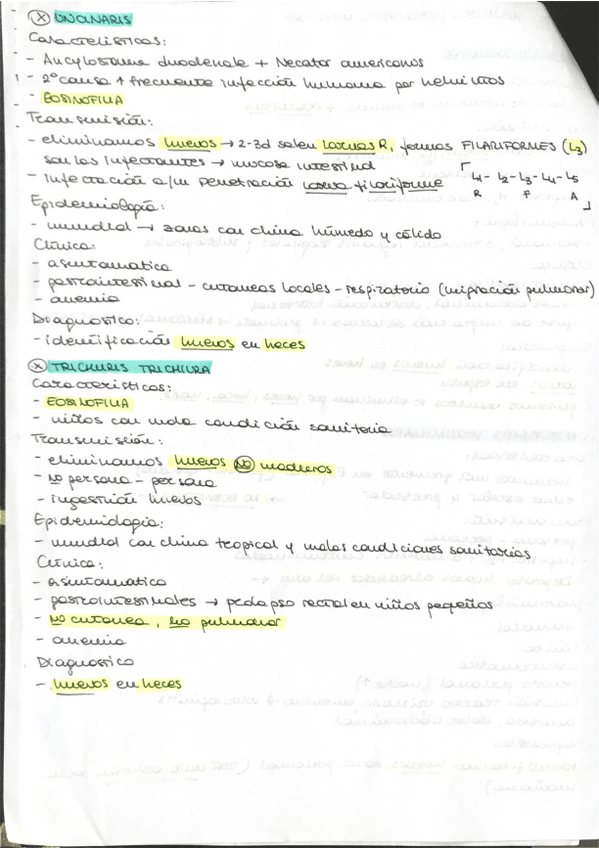 Ⓧ UNCINARIS
Características:
- Ancylostoma duodenale + Necator americanos
- 2º causa + frecuente infección humana por helmintos
- EOSINOFILIA
Transmisión:
- eliminamos huevos → 2-3d salen larvas R, formas FILARIFORMES (L3)
son las infectantes → mucosa intestinal
- Infectación a/m penetración larva filariforme
L1 - L2 - L3 - L4 - L5
R F A
Epidemiología:
- mundial → zonas con clima húmedo y cálido
Clínica:
- asintomatica
- gastrointestinal - cutaneas locales - respiratorio (migración pulmonar)
- anemia
Diagnostico:
- identificación huevos en heces
Ⓧ TRICHURIS TRICHIURA
Características:
- EOSINOFILIA
- niños con mala condición sanitaria
Transmisión:
- eliminamos huevos NO maduros
- no persona - persona
- ingestión huevos
Epidemiologia:
- mundial con clima tropical y malas condiciones sanitarias
Clínica:
- asintomatico
- gastrointestinales → prolapso rectal en niños pequeños
- no cutanea, no pulmonar
- anemia
Diagnostico
- huevos en heces